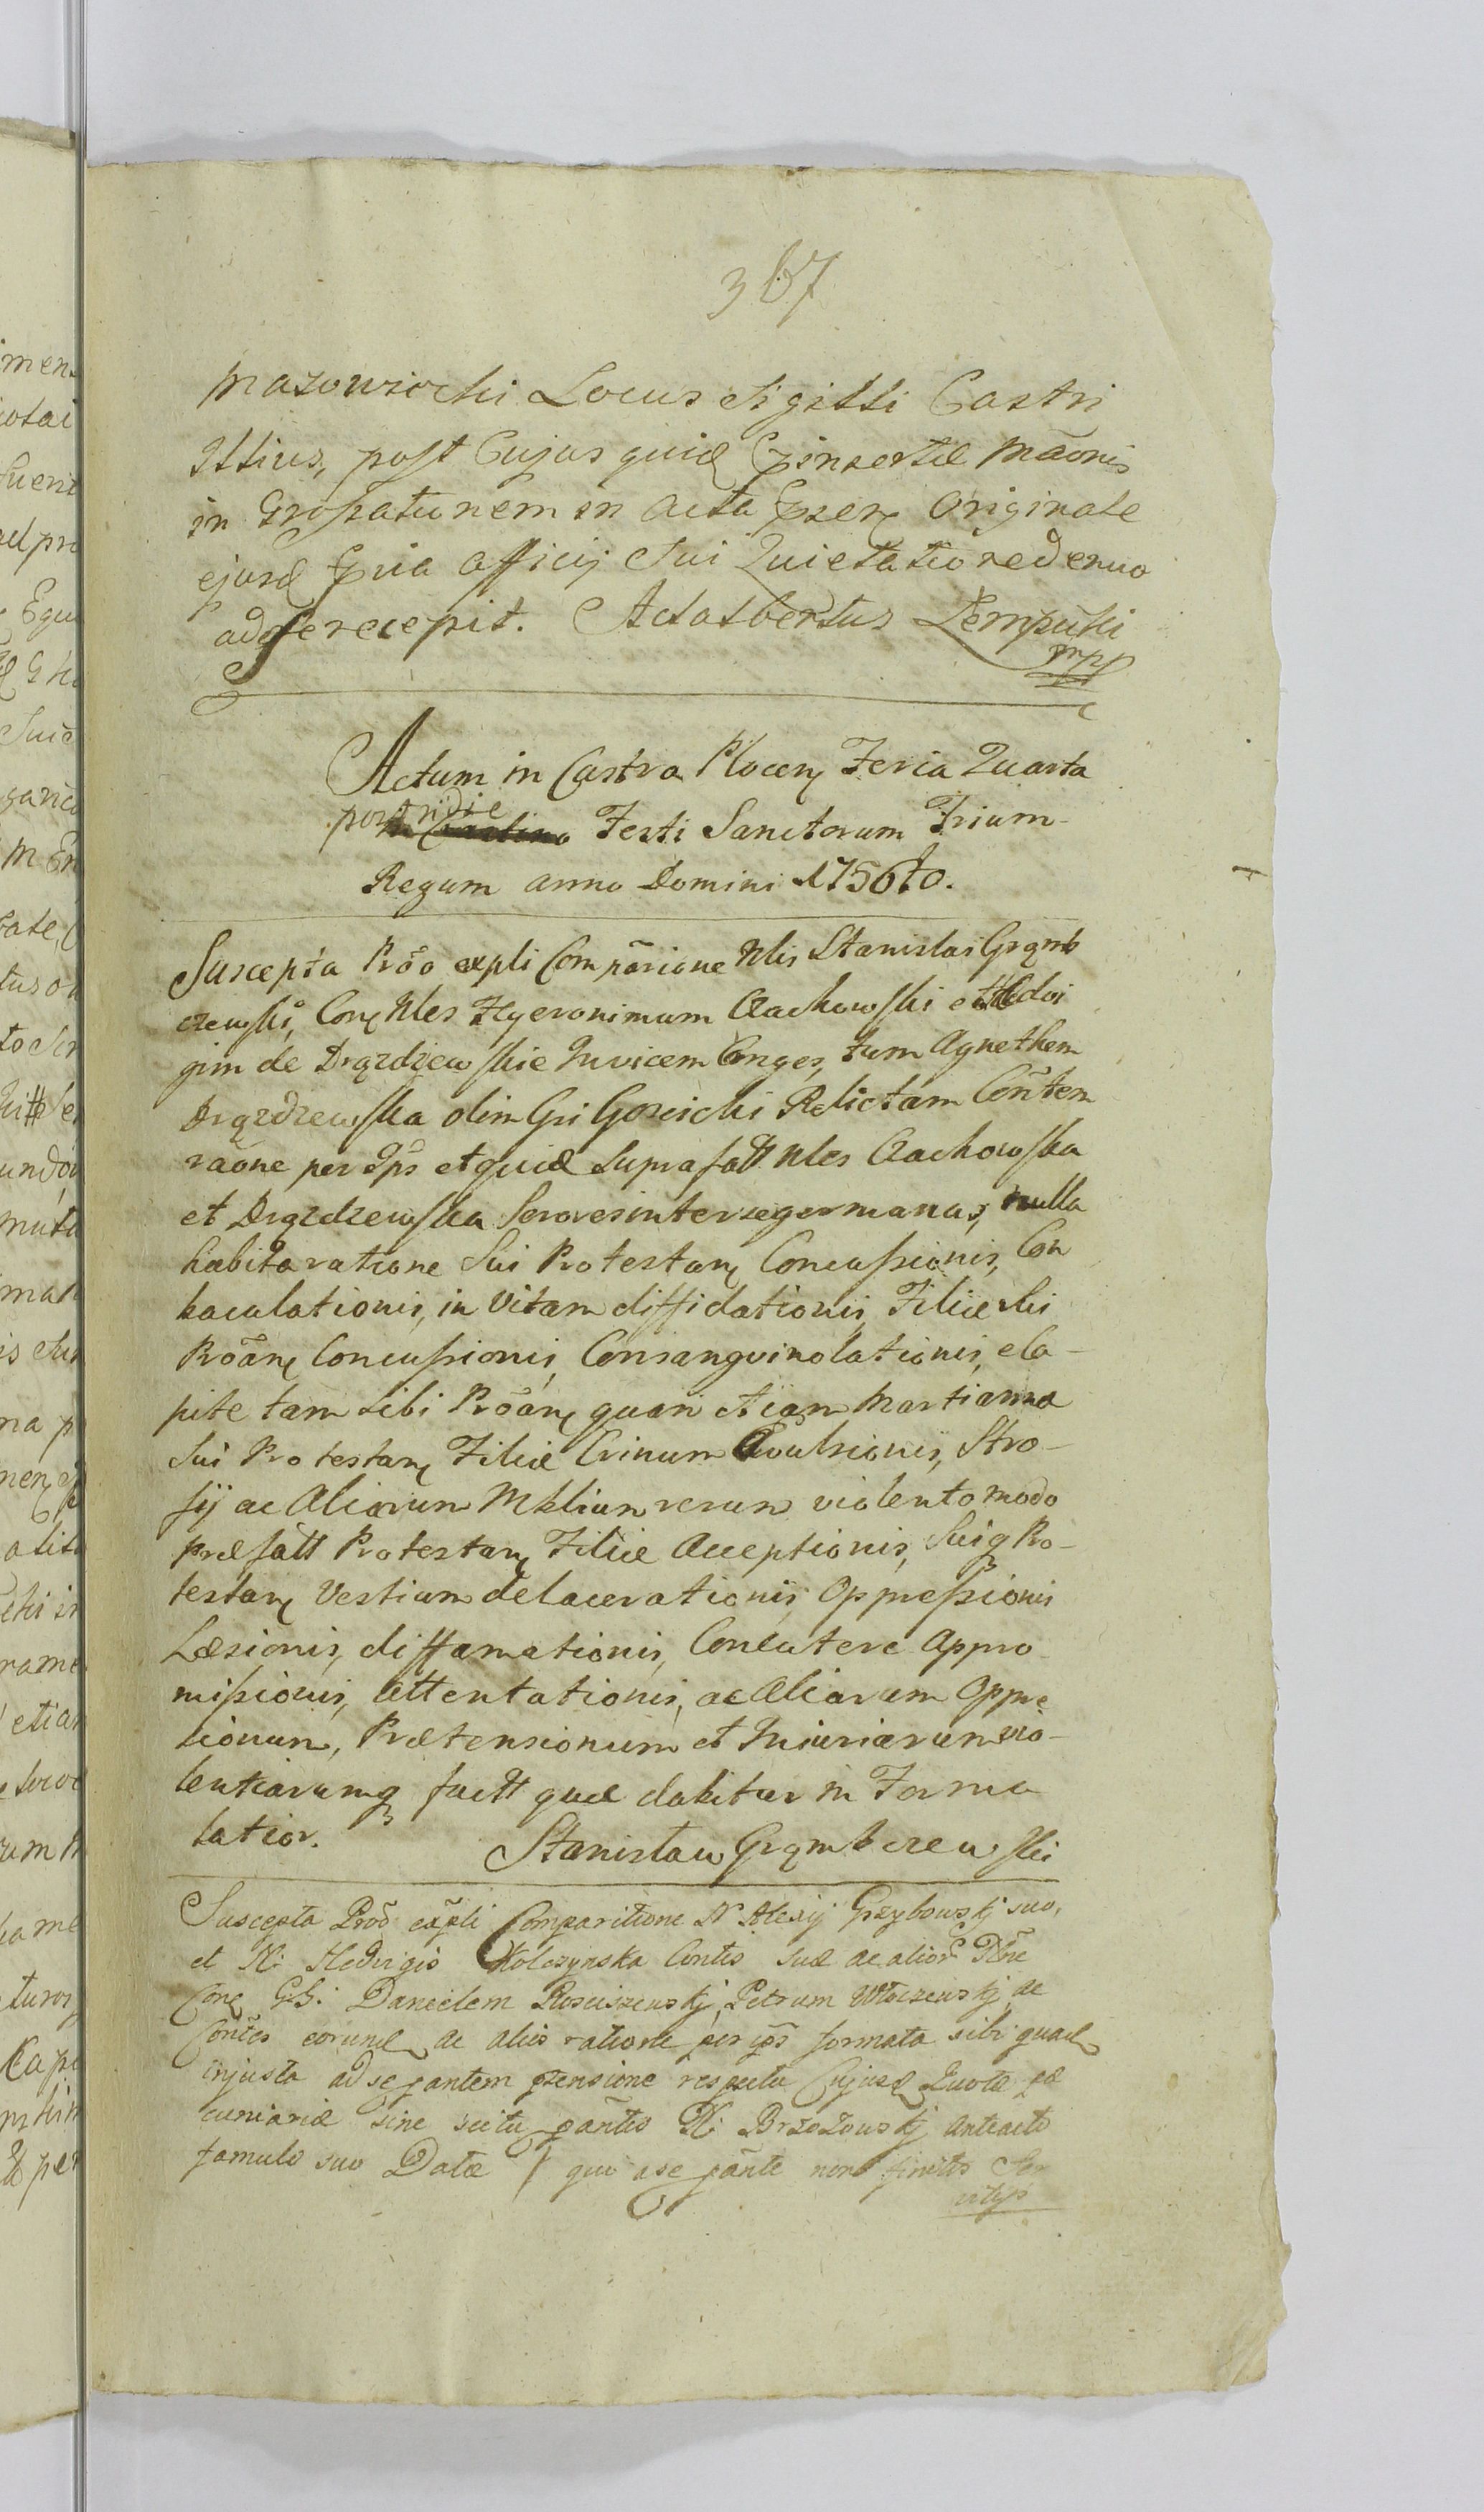 367
Mazowiecki Locus Sigilli Castri
Illius, post Cujus quid Ppinsertæ Mãonis
in Grossationem in Acta Pñsen Originale
ejusd Pria Officij Sui Quietatio redenuo
ad se recepit. Adalbertus Lempicki
mpp
Actum in Castro Plocen Feria Quarta
postridie Festi Sanctorum Trium
Regum anno Domini 1756to.
Suscepta Prõo expli Compãrione Nlis Stanislai Grąmb
czewski, Con Nles Hyeronimum Czachowski et Hedvi
gim de Drązdzewskie Invicem Conges, tum Agnethem
Drązdzewska olim Gsi Gosicki Relictam Cõntem
raõne per Ips et quid suprafatt Nles Czachowska
et Drązdzewska Sorores inter se germanas, nulla
habita ratione Sui Protestan Concussionis, Con
baculationis, in Vitam diffidationis, Filiæ sui
Prõan Concussionis, Consangvinolationis, e Ca-
pite tam sibi Prõan quam etiam Martianna
Sui Protestan Filiæ Crinum Avulsionis, Stro-
fij ac Aliorum Mlium rerum violento modo
præfatt Protestan Filiæ Acceptionis, Suiq Pro-
testan Vestium delacerationis, Oppressionis
Læsionis, diffamationis, Concutere Appro-
missionis, Attentationis, ac Aliarum Oppre
sionum, Prætensionum et Iniuriarum vio-
lentiarumq factt quæ dabitur in Forma
latior. Stanisław Grąmbczewski
Suscepta Prõo expli Comparitione N Alexij Grzybowskj suo,
et N: Hedvigis Kolczynska Contis suæ ac alior Nõe
Con G.S: Danielem Rosciszewskj, Petrum Włoczewskj, ac
Cõntes eorund ac alios ratione per ips formata sibi quad
injusta ad se pantem ptensione respectu Cujusd Quotæ pe
cuniariæ sine scitu pãntis N: Brzozowskj Anteacto
famulo suo Datæ quo a se pãnte non finitis Ser
vitijs